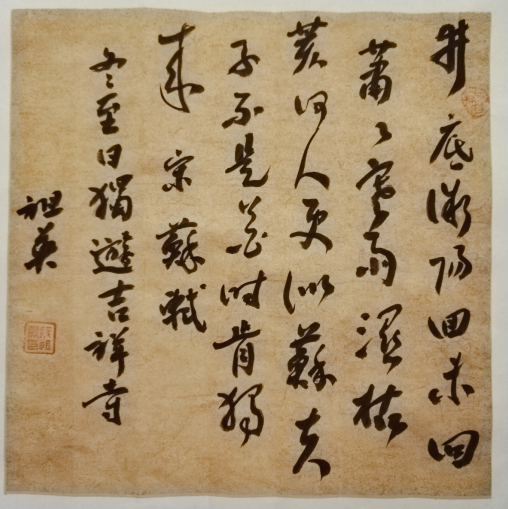 井底微陽回未回
蕭々寒雨濕枯
荄何人更似蘇夫
子不是花时肯獨
来 宋 蘇軾
冬至日獨遊吉祥寺
祖英